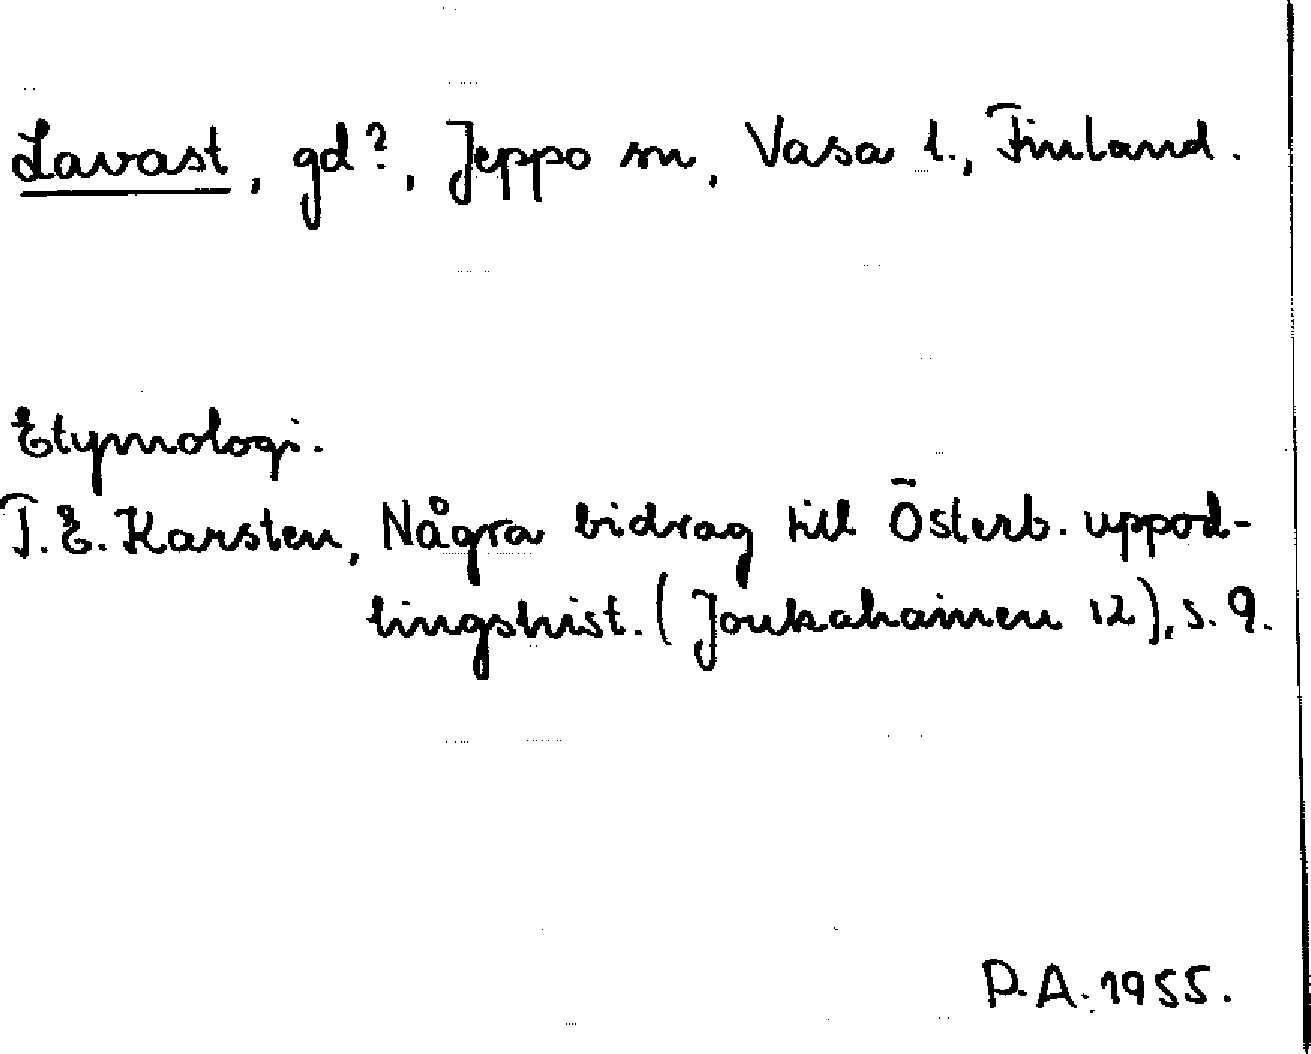 Lavast, gd?, Jeppo sn, Vasa l., Finland.
Etymologi.
T.E. Karsten, Några bidrag till Österb. uppod-
lingshist. (Joukahainen 12), s. 9.
P.A. 1955.